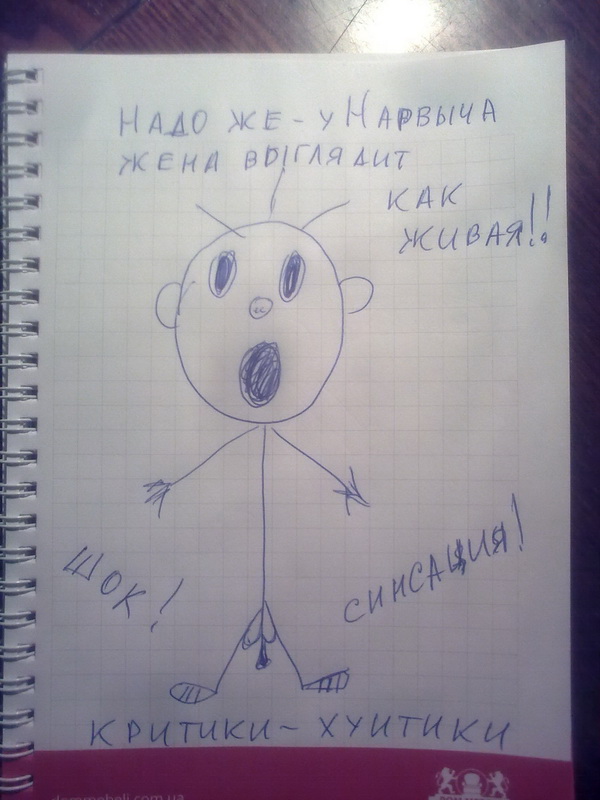 НАДО ЖЕ - У НАРВЫЧА
ЖЕНА ВЫГЛЯДИТ
КАК
ЖИВАЯ!!
ШОК!
СИНСАЦИЯ!
КРИТИКИ - ХУИТИКИ